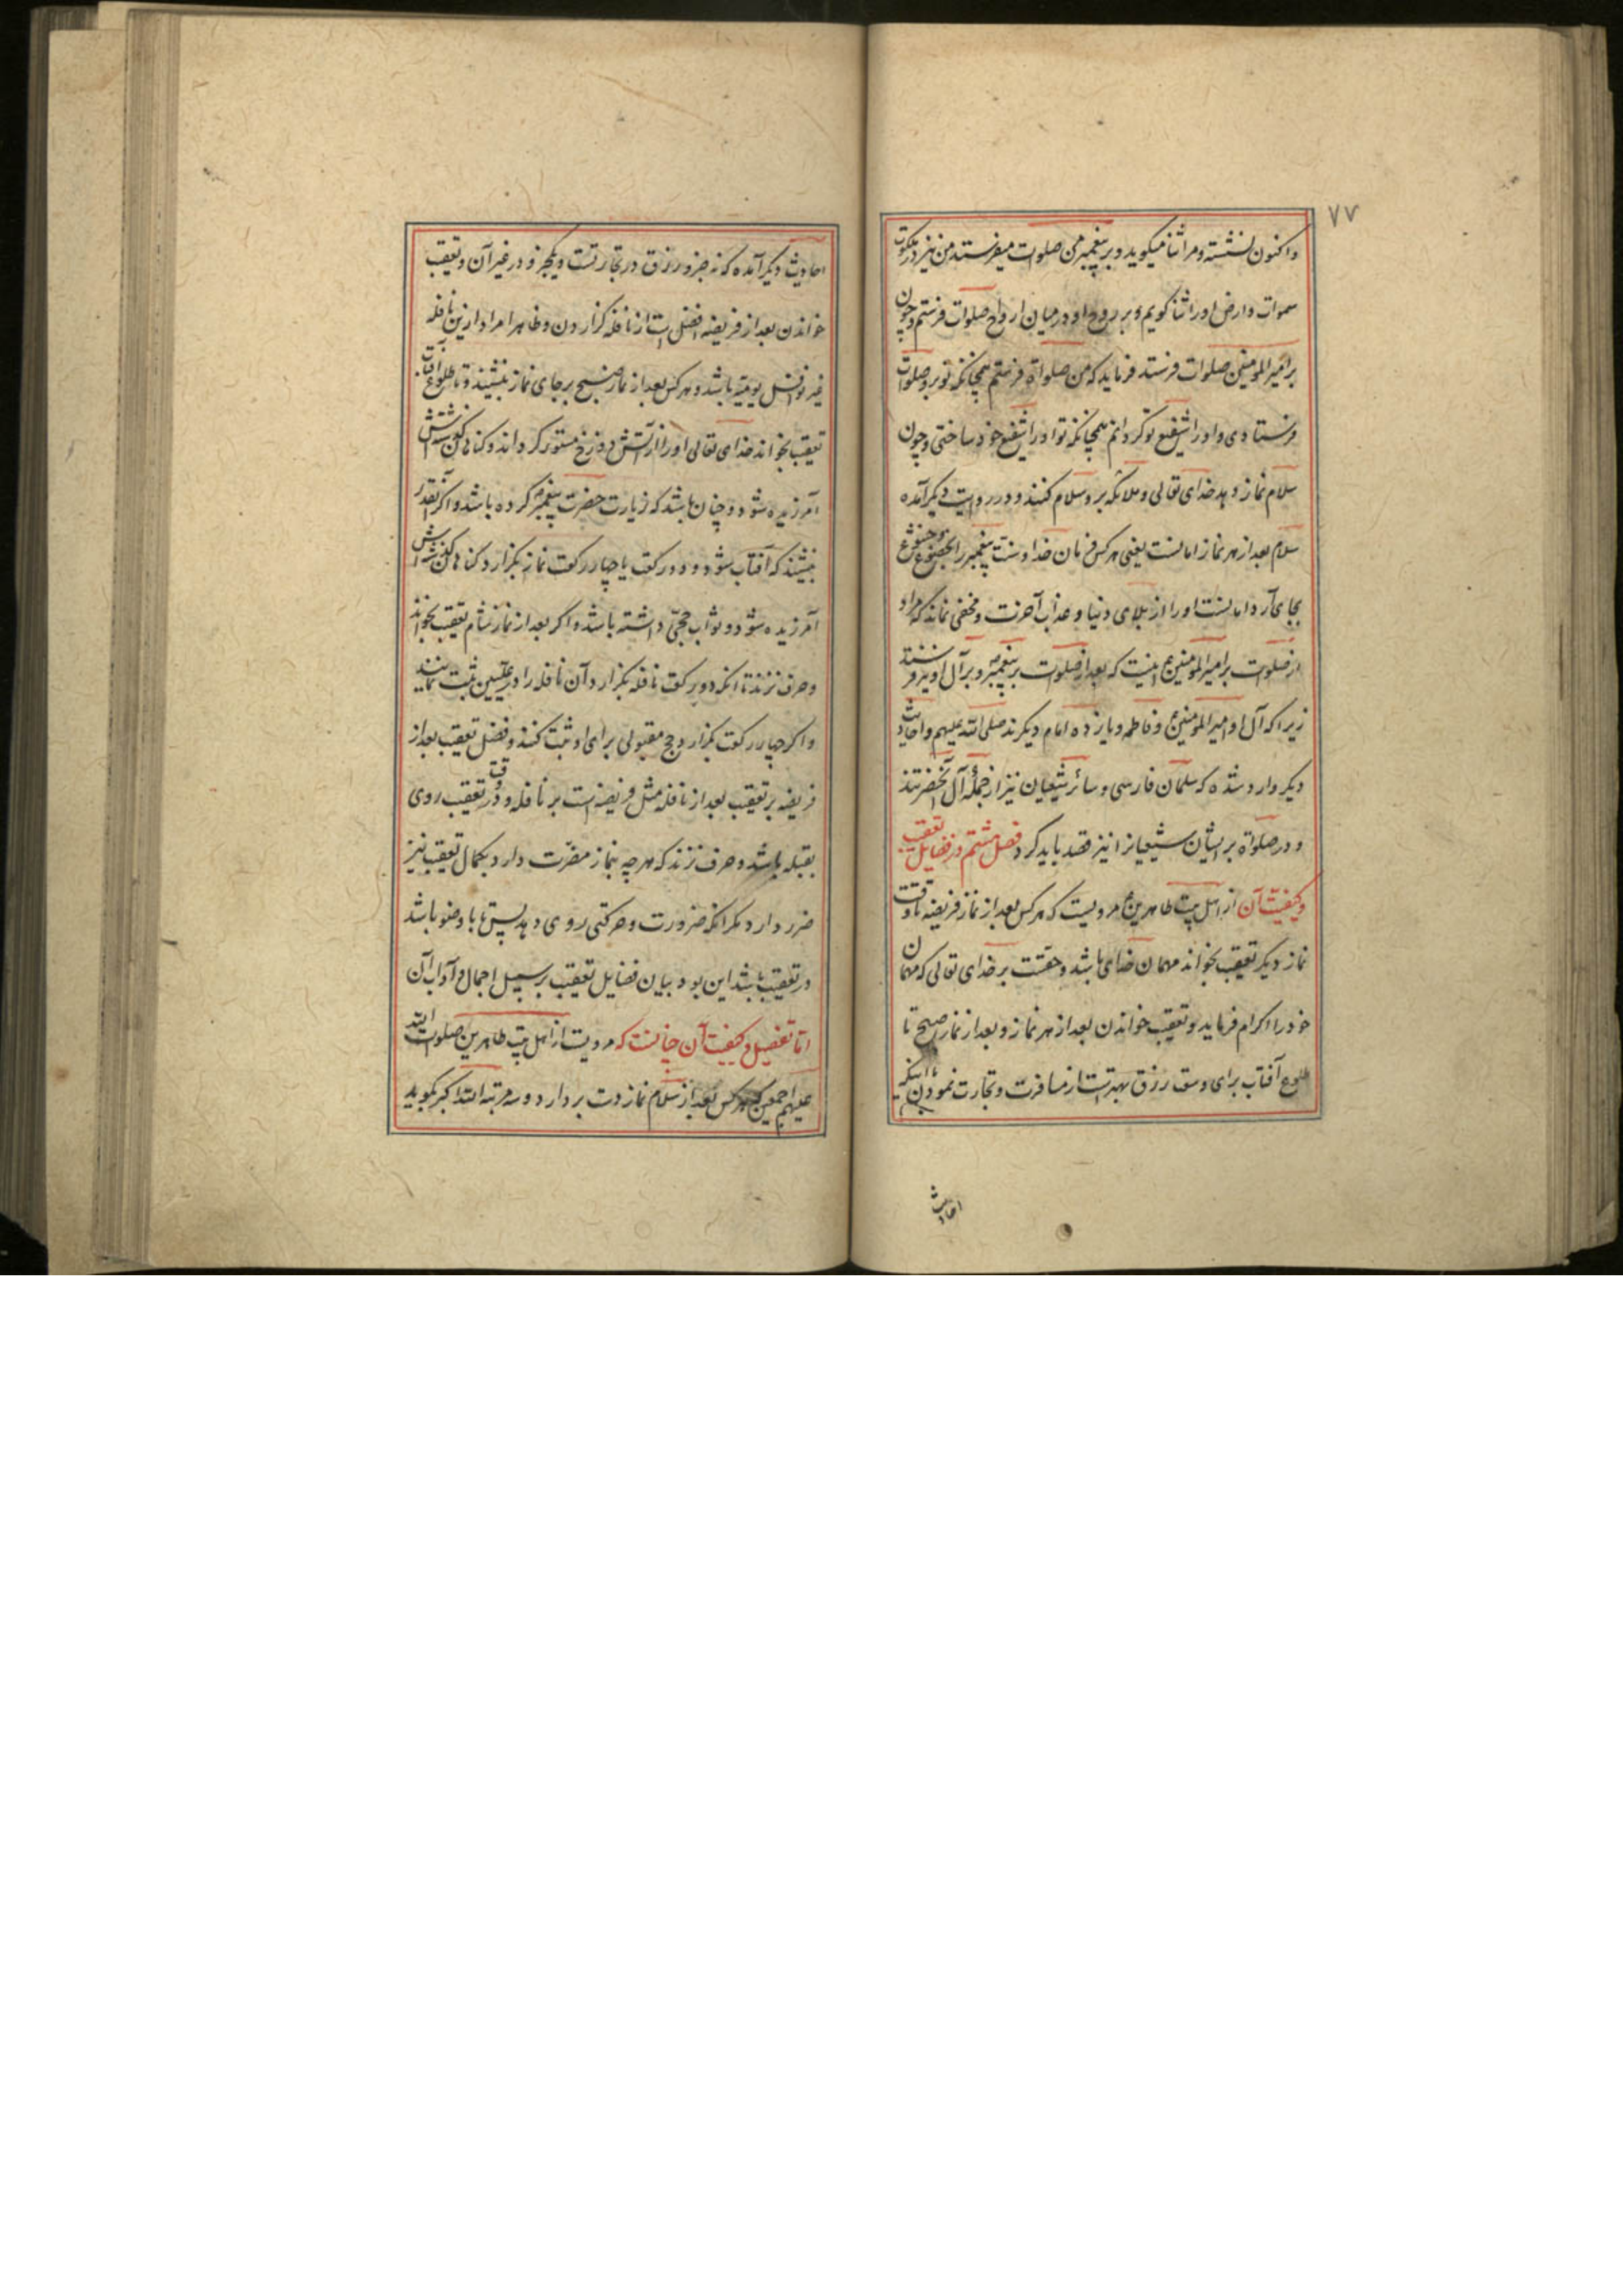 ۷۷
واکنون نشسته و مرا ثنا میکوید و بر پیغمبر من صلوات میفرستد من نیز در ملکوت
سموات و ارض او را ثنا کویم و بر روح او در میان ارواح صلوات فرستم و چون
بر امیر المومنین صلوات فرستد فرماید که من صلواة فرستم همچنانکه تو برو صلوات
فرستادی و او را شفیع تو کردانم همچنانکه تو او را شفیع خود ساختی و چون
سلام نماز دهد خدای تعالی و ملائکه برو سلام کنند و در روایت دیکر آمده
سلام بعد از هر نماز امانست یعنی هر کس فرمان خدا و سنت پیغمبر را بخضوع و خشوع
بجای آرد امانست او را از بلای دنیا و عذاب آخرت و مخفی نماند که مراد
از صلوات بر امیر المومنین ع اینست که بعد از صلوات بر پیغمبر و بر آل او نیز فرستند
زیرا که آل او امیر المومنین ع و فاطمه و یازده امام دیکرند صلی الله علیهم و احادیث
دیکر وارد شده که سلمان فارسی و سائر شیعیان نیز از جملهٔ آل آنحضرتند
و در صلواة بر ایشان شیعیانرا نیز قصد باید کرد فصل هشتم در فضایل تعقیب
و کیفیت آن از اهل بیت طاهرین ع مرویست که هر کس بعد از نماز فریضه تا وقت
نماز دیکر تعقیب بخواند مهمان خدای باشد و حقست بر خدای تعالی که مهمان
خود را اکرام فرماید و تعقیب خواندن بعد از هر نماز و بعد از نماز صبح تا
طلوع آفتاب برای وسعت رزق بهتر است از مسافرت و تجارت نمودن با اینکه
احادیث
احادیث دیکر آمده که نه جزو رزق در تجارتست و یکجزو در غیر آن و تعقیب
خواندن بعد از فریضه افضل است از نافله کزاردن و ظاهرا مراد ازین نافله
غیر نوافل یومیه باشد و هر کس بعد از نماز صبح بر جای نماز بنشیند و تا طلوع آفتاب
تعقیب بخواند خدای تعالی او را از آتش دوزخ مستور کرداند و کناهان کذشته اش
آمرزیده شود و چنان باشد که زیارت حضرت پیغمبر کرده باشد و اکر آنقدر
بنشیند که آفتاب شود و دو رکعت یا چهار رکعت نماز بکزارد کناهان کذشته اش
آمرزیده شود و ثواب حجی داشته باشد و اکر بعد از نماز شام تعقیب بخواند
و حرف نزند تا انکه دو رکعت نافله بکزارد آن نافله را در علیین ثبت نمایند
و اکر چهار رکعت بکزارد حج مقبولی برای او ثبت کنند و فضل تعقیب بعد از
فریضه بر تعقیب بعد از نافله مثل فریضه است بر نافله و در وقت تعقیب روی
بقبله باشد و حرف نزند که هر چه بنماز مضرت دارد بکمال تعقیب نیز
ضرر دارد مکر انکه ضرورت و حرکتی روی دهد پس با وضو باشد
در تعقیب باشد این بود بیان فضایل تعقیب بر سبیل اجمال و آداب آن
اما تفصیل و کیفیت آن چنانست که مرویست از اهل بیت طاهرین صلوات الله
علیهم اجمعین که هر کس بعد از سلام نماز دست بردارد و سه مرتبه الله اکبر بکوید